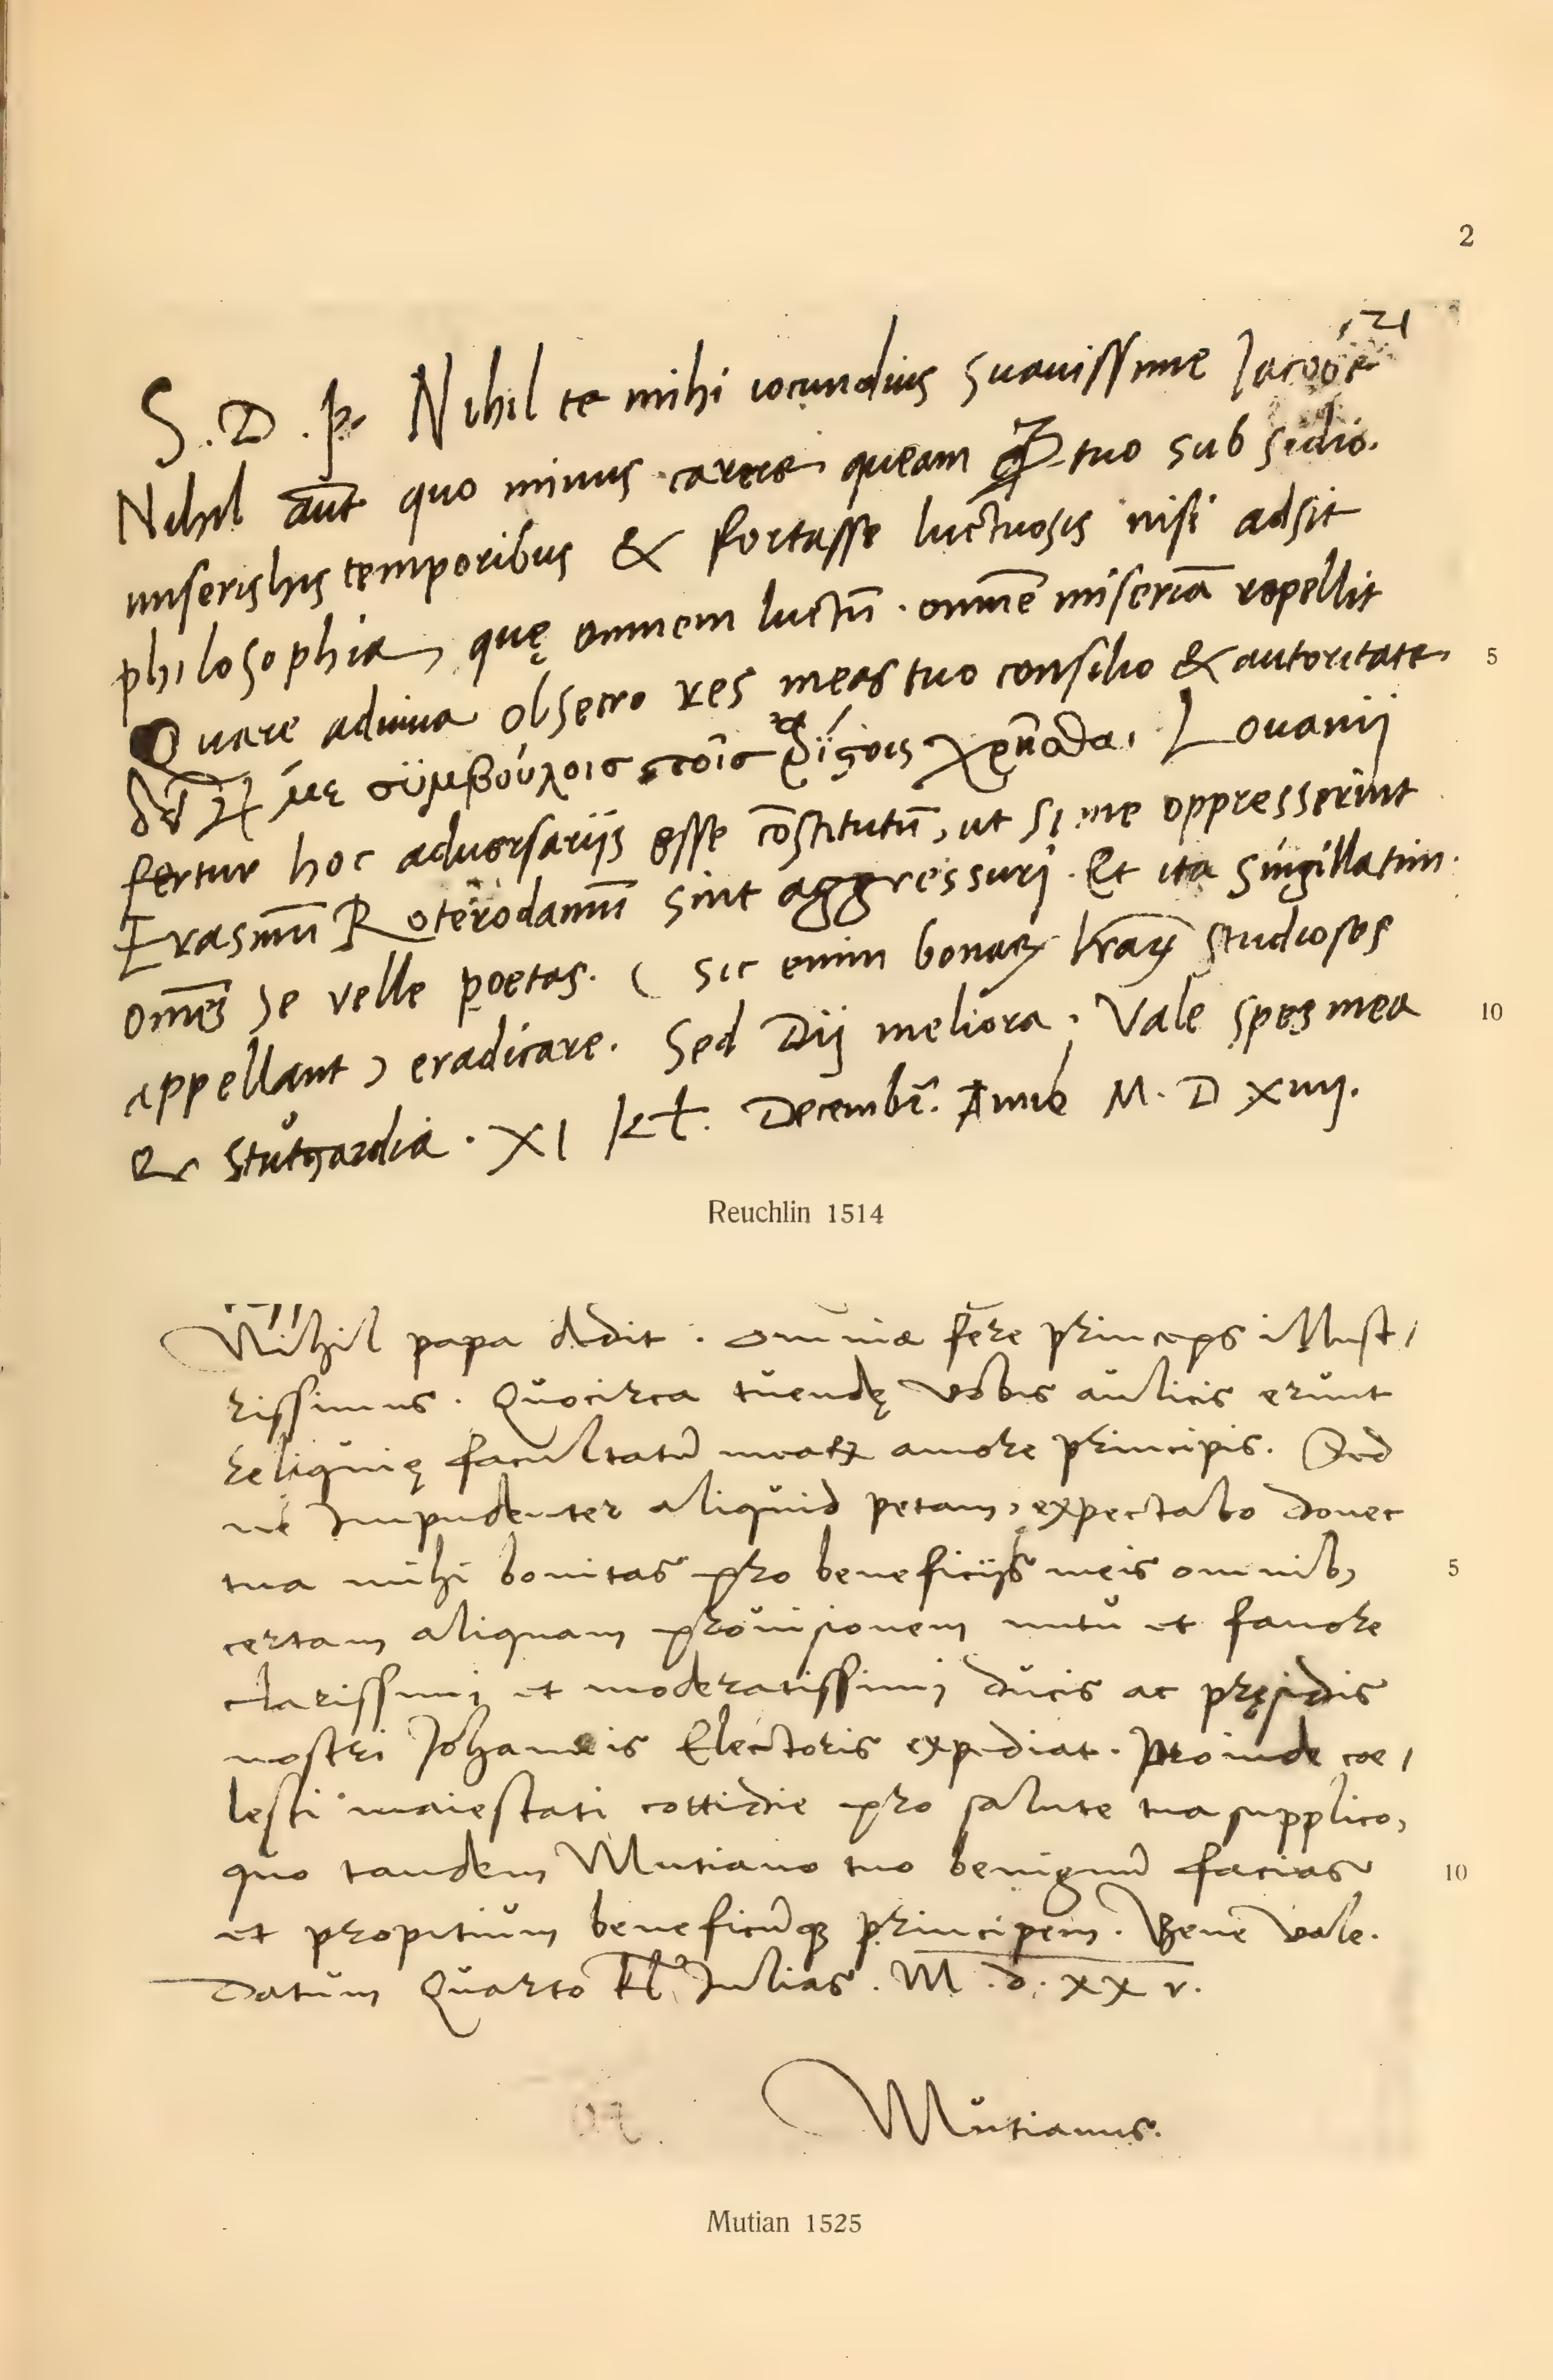 2
121
S. D. P. Nihil te mihi iocundius suauissime Jacobe
Nihil aūt quo minus carere queam ꝙ tuo subsidio.
miseris his temporibus & fortasse luctuosis nisi adsit
philosophia, quę omnem luctū. omnē miseriā repellit
Quare adiuua obsecro res meas tuo consilio & autoritate
5
με σϋμβούλοισ τοῖσ Louanij
fertur hoc aduersarijs esse cōstitutū, ut si me oppresserint
Erasmū Roterodamū sint aggressuri. Et ita singillatim
omēs se velle poetas. ( sic enim bonaꝝ lr̄aꝝ studiosos
10
appellant ) eradicare. Sed Dij meliora. Vale spes mea
Ex Stutgardia. XI kł. Decembr̄. Anno M. D XIIIJ.
Reuchlin 1514
Nihil papa dedit. omnia fere princeps illust/
rissimus. Quocirca tuendę vobis aulicis erunt
reliquię facultatū meaꝝ amore principis. Sed
ne Impudenter aliquid petam, expectabo donec
tua mihi bonitas pro beneficijs meis omnibꝫ
5
certam aliquam prouisionem nutu et fauore
clarissimi et moderatissimi ducis ac pręsidis
nostri Johannis Electoris expediat. Proinde coe/
lesti maiestati cottidie pro salute tua supplico,
quo tandem Mutiano tuo benignū facias
10
et propitium beneficūqꝫ principem. Bene vale.
Datum Quarto kl̄. Julias. M. d. xx v.
Mutianus.
Mutian 1525